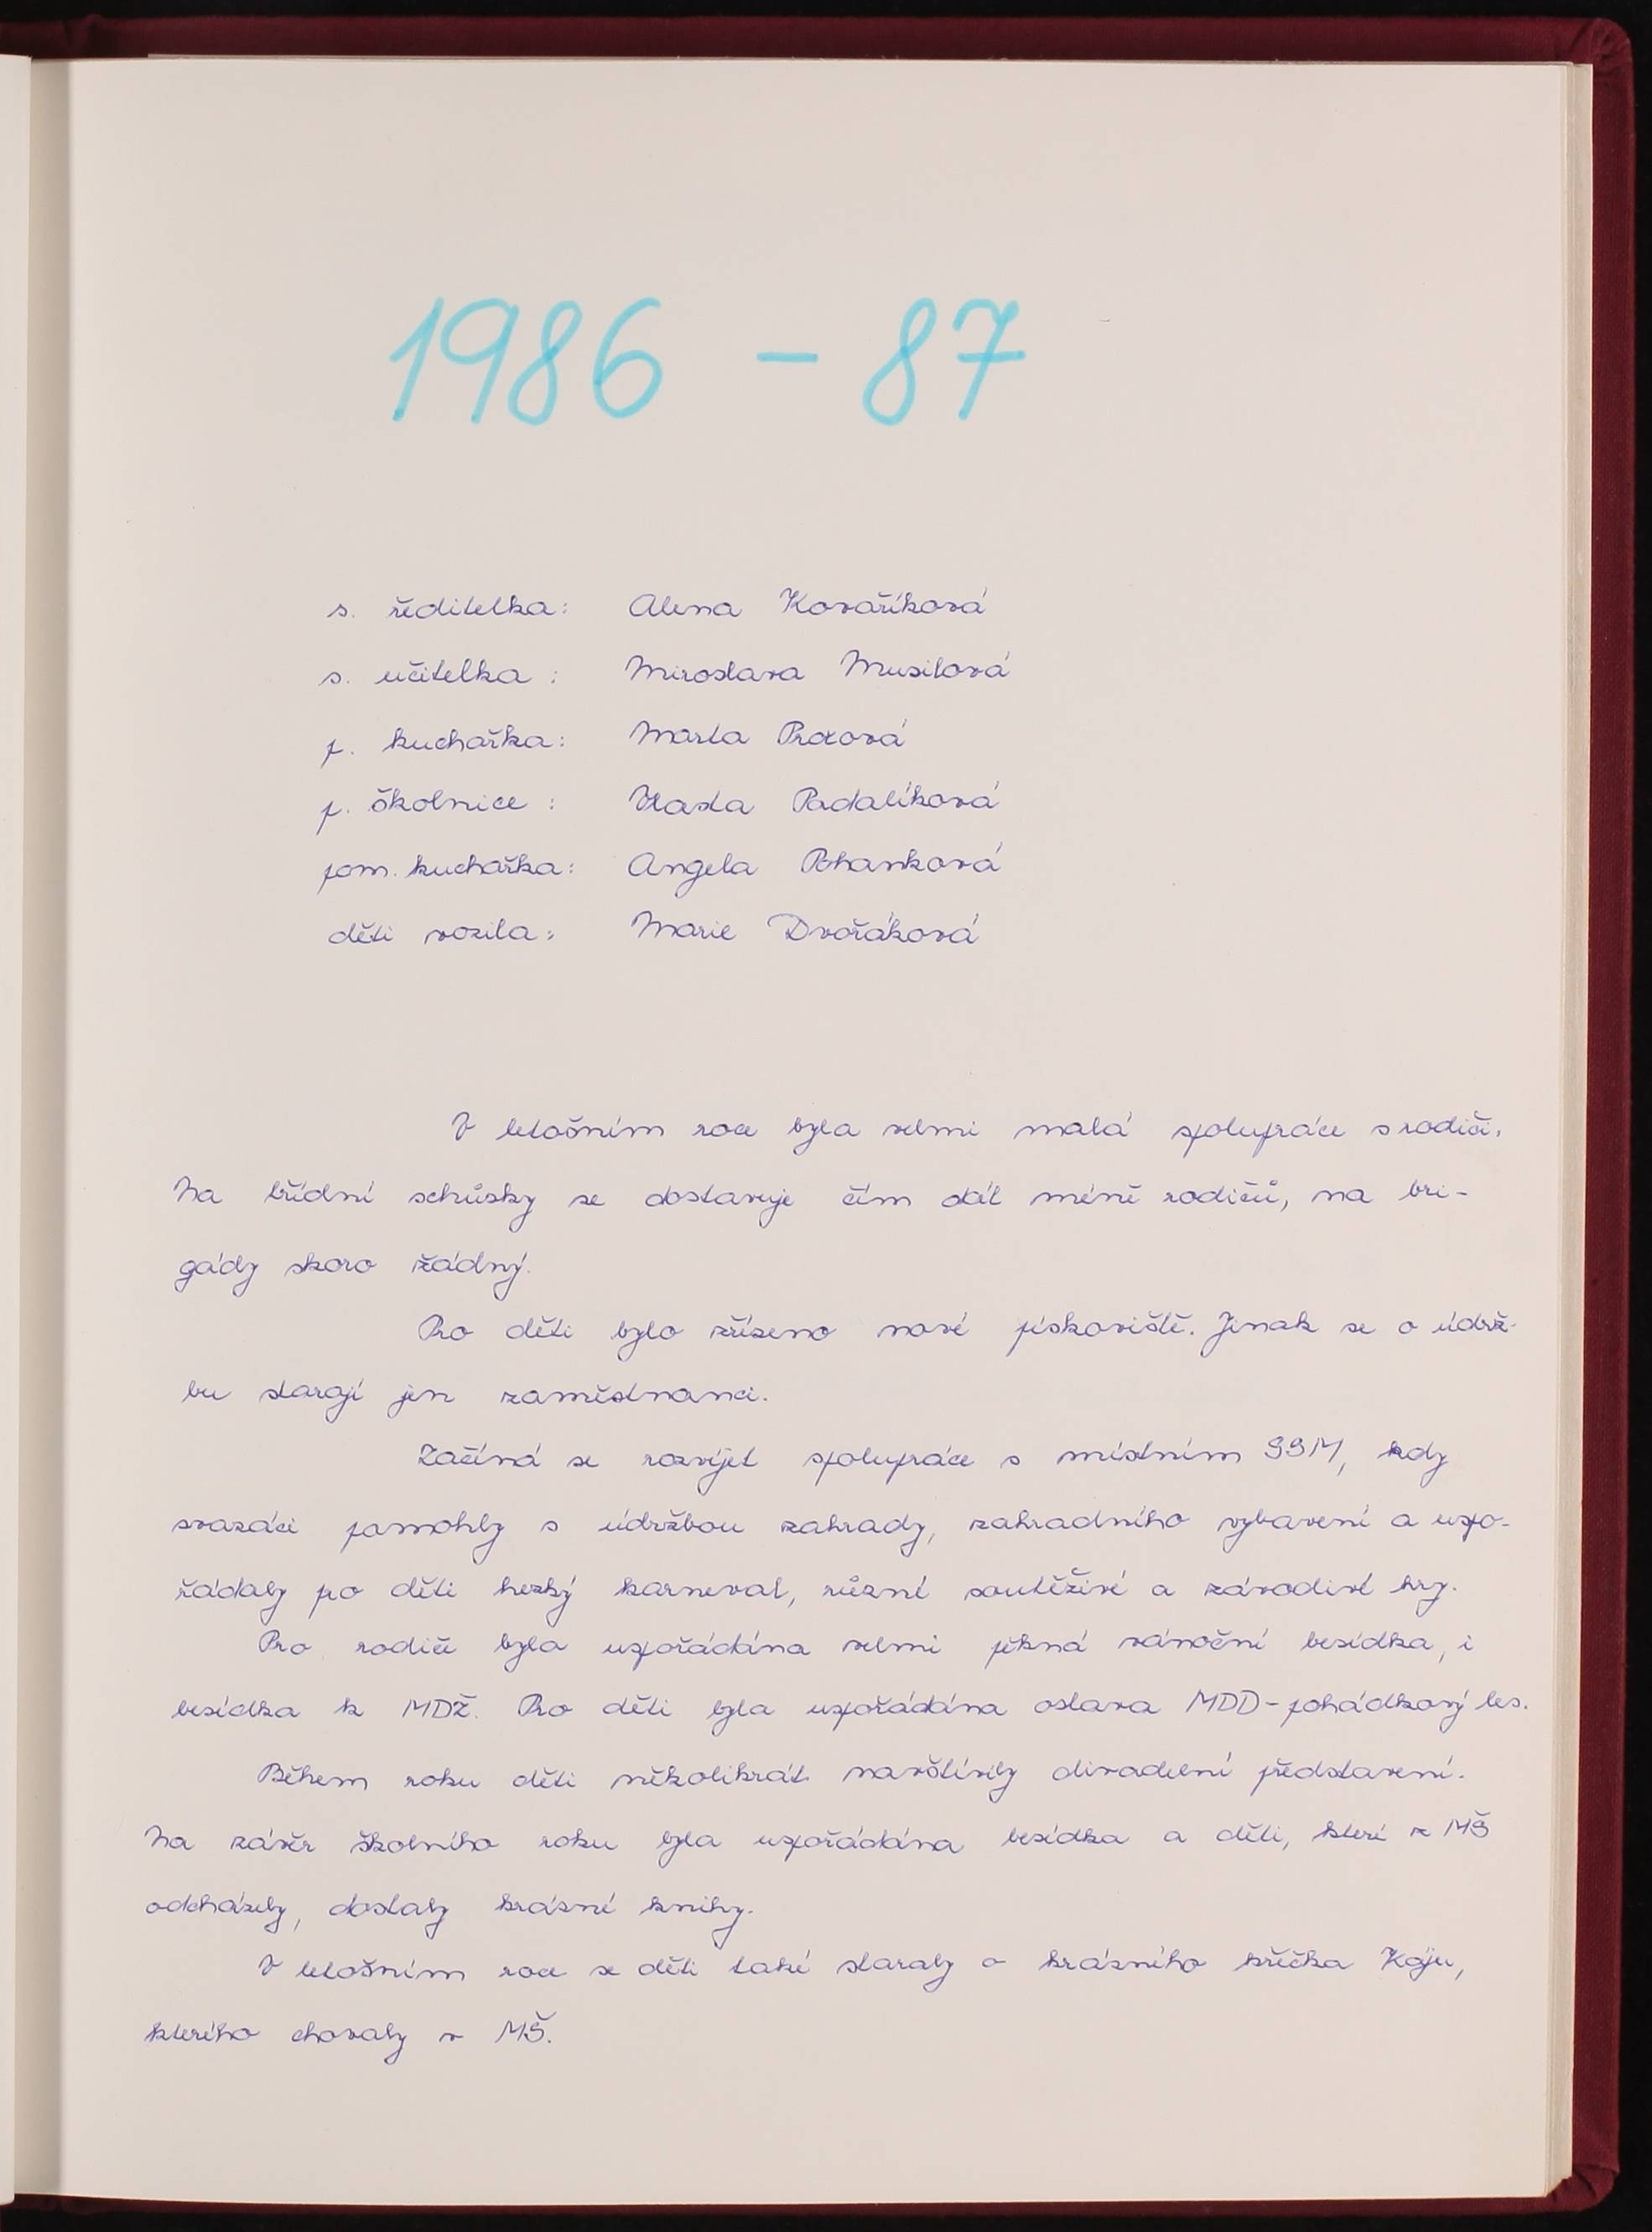 1986 - 87
s. ředitelka: Alena Kovaříková
s. učitelka : Miroslava Musilová
p. kuchařka: Marta
p. školnice : Vlasta Padalíková
pom. kuchařka: Angela Pohanková
děti vozila: Marie Dvořáková
V letošním roce byla velmi malá spolupráce s rodiči.
Na třídní schůzky se dostavuje čím dál méně rodičů, na bri-
gády skoro žádný.
Pro děti bylo zřízeno nové pískoviště. Jinak se o údrž-
bu starají jen zaměstnanci.
Začíná se rozvíjet spolupráce s místním SSM, kdy
svazáci pomohly s údržbou zahrady, zahradního vybavení a uspo-
řádaly po děti hezký karneval, různé soutěživé a závodivé hry.
Pro rodiče byla uspořádána velmi pěkná vánoční besídka, i
besídka k MDŽ. Pro děti byla uspořádána oslava MDD - pohádkový les.
Během roku děti několikrát navštívily divadelní představení.
Na závěr školního roku byla uspořádána besídka a děti, které z MŠ
odcházely, dostaly krásné knihy.
V letošním roce se děti také staraly o krásného křečka Káju,
kterého chovaly v MŠ.